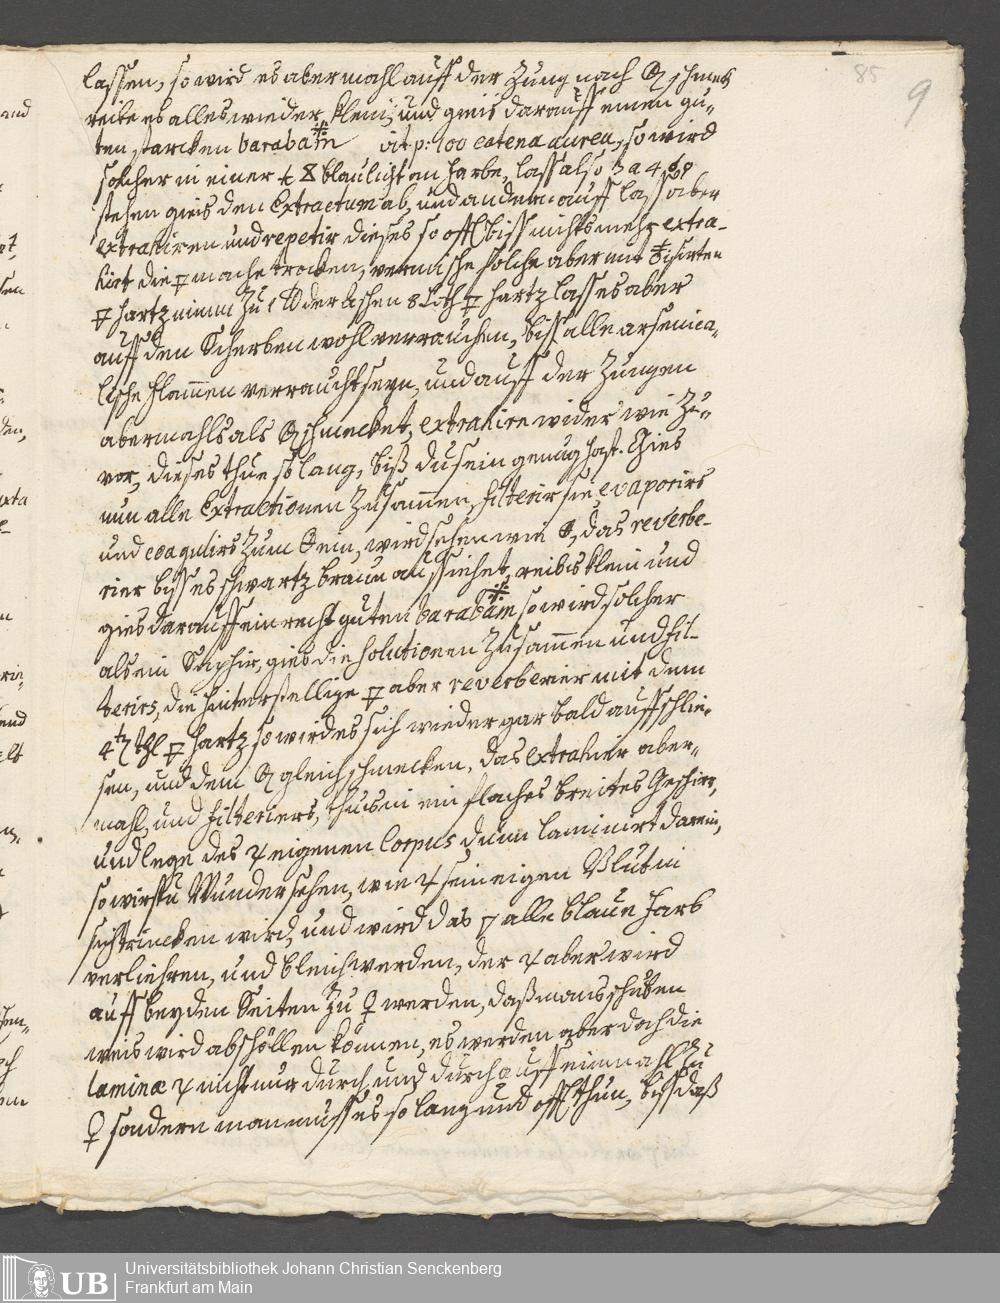 85
9
lassen, so wird es abermahl auff der Zung nach 🜔 schmek
reibe es alles wieder klein, und gieß darauff einen gu-
ten starcken barabam vit p: 100 catena aurea, so wird
solcher in einer blaulichten Farbe, lass also 3 a 4
stehen gies den Extractum ab, und andern auff lass aber
extrahiren und repetir dieses so offt biss nichts mehr extra-
hirt die mache trocken, vermische solche aber mit
hartz nimm zu 1 ℔ der Aschen 8 Loth hartz lass es aber
auff den Scherben wohl verrauchen, biss alle arsenica-
lische flam̄en verraucht seyn, und auff der Zungen
abermahls als schmecket, extrahire wider wie Zu-
vor, dieses thue so lang, biß du sein genug hast. Gies
nun alle Extractionen Zusam̄en, filterir sie evaporirs
und coagulirs Zum ein, wird sehen wie das reverbe-
rier biss es schwartz braun aussiehet, reibs klein und
gies darauff ein recht guten barabam so wird solcher
als ein Saphir, gies die Solutionen Zusam̄en und fil-
terirs, die hinterstellige aber reverberier mit dem
4 thl hartz so wird es sich wieder gar bald auffschlie-
sen, und dem gleich schmecken, das extrahier aber-
mahl, und filteriers, thus in ein flaches breites Geschirr,
und lege des ♃ eigenen Corpus dünn laminirt darein,
so wirstu Wunder sehen, wie ♃ sein eigen Blut in
sich trincken wird, und wird das alle blaue Farb
verliehren, und bleich werden, der ♃ aber wird
auff beyden Seiten zu ♀ werden, daß mans schuben
weis wird abschöllen können, es werden aber doch die
laminæ ♃ nicht nur durch und durch auff einmahl zu
♀ sondern man muss es so lang und offt thun, biss daß
UB
Universitätsbibliothek Johann Christian Senckenberg
Frankfurt am Main